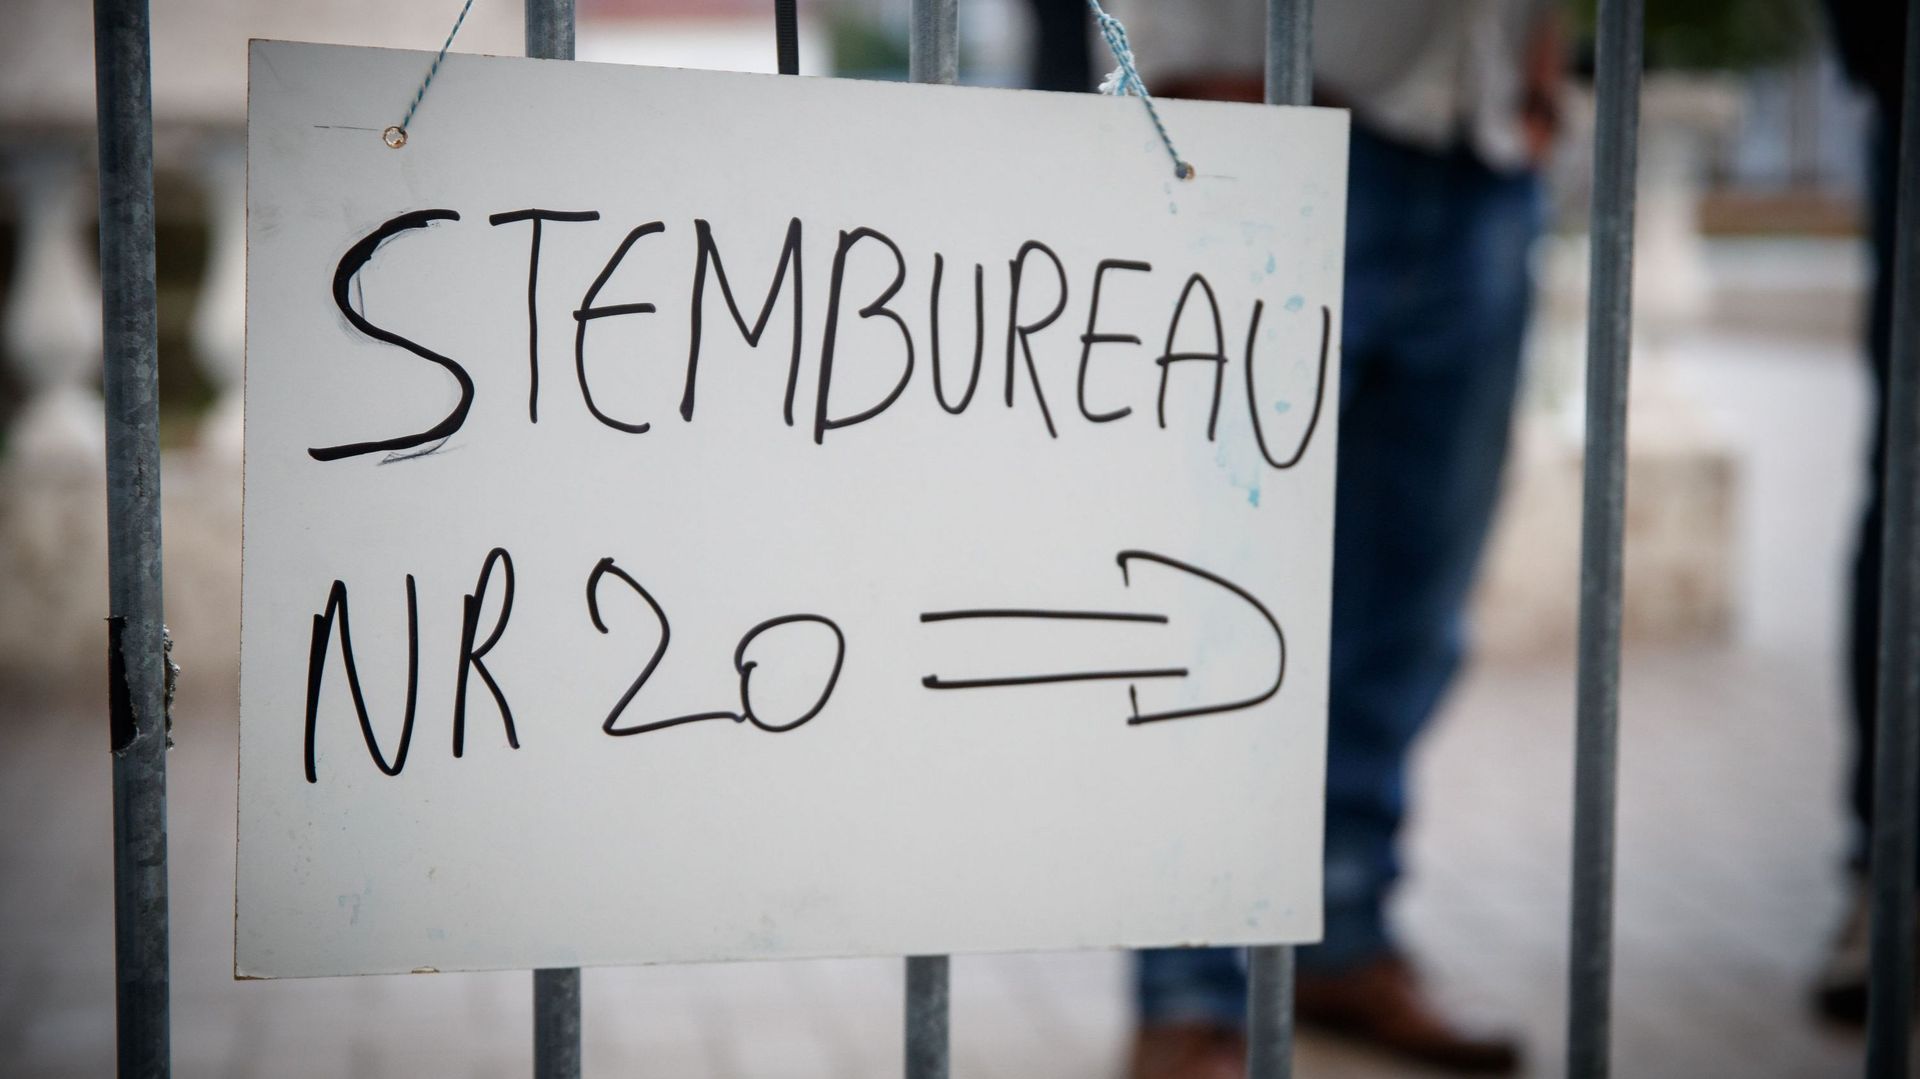 STEMBUREAU
NR 20 ⇒